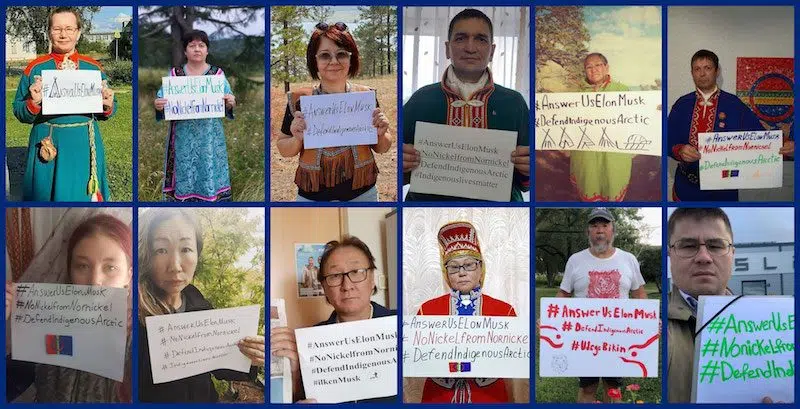 #AnswUsElonMusk
#AnswerUsElonMusk
#NoNickelfromNornickel
#AnswerUsElonMusk
#DefendIndigenousArctic
#AnswerUsElonMusk
#NoNickelfromNornickel
#DefendIndigenousArctic
#Indigenouslivesmatter
#AnswerUsElonMusk
#DefendIndigenousArctic
#AnswerUsElonMusk
#NoNickelFromNornickel
#DefendIndigenousArctic
#AnswerUsElonMusk
#NoNickelfromNornickel
#DefendIndigenousArctic
#AnswerUsElonMusk
#NoNickelfromNornickel
#DefendIndigenousArctic
#AnswerUsElonMusk
#NoNickelfromNorni
#DefendIndigenousArctic
#ilkenMusk
#AnswerUsElonMusk
#NoNickelfromNornicke
#DefendIndigenousArctic
#AnswerUsElonMusk
#DefendIndigenousArctic
#Bikin
SL
#AnswerUsE
#Nonickelfr
#DefendIndi